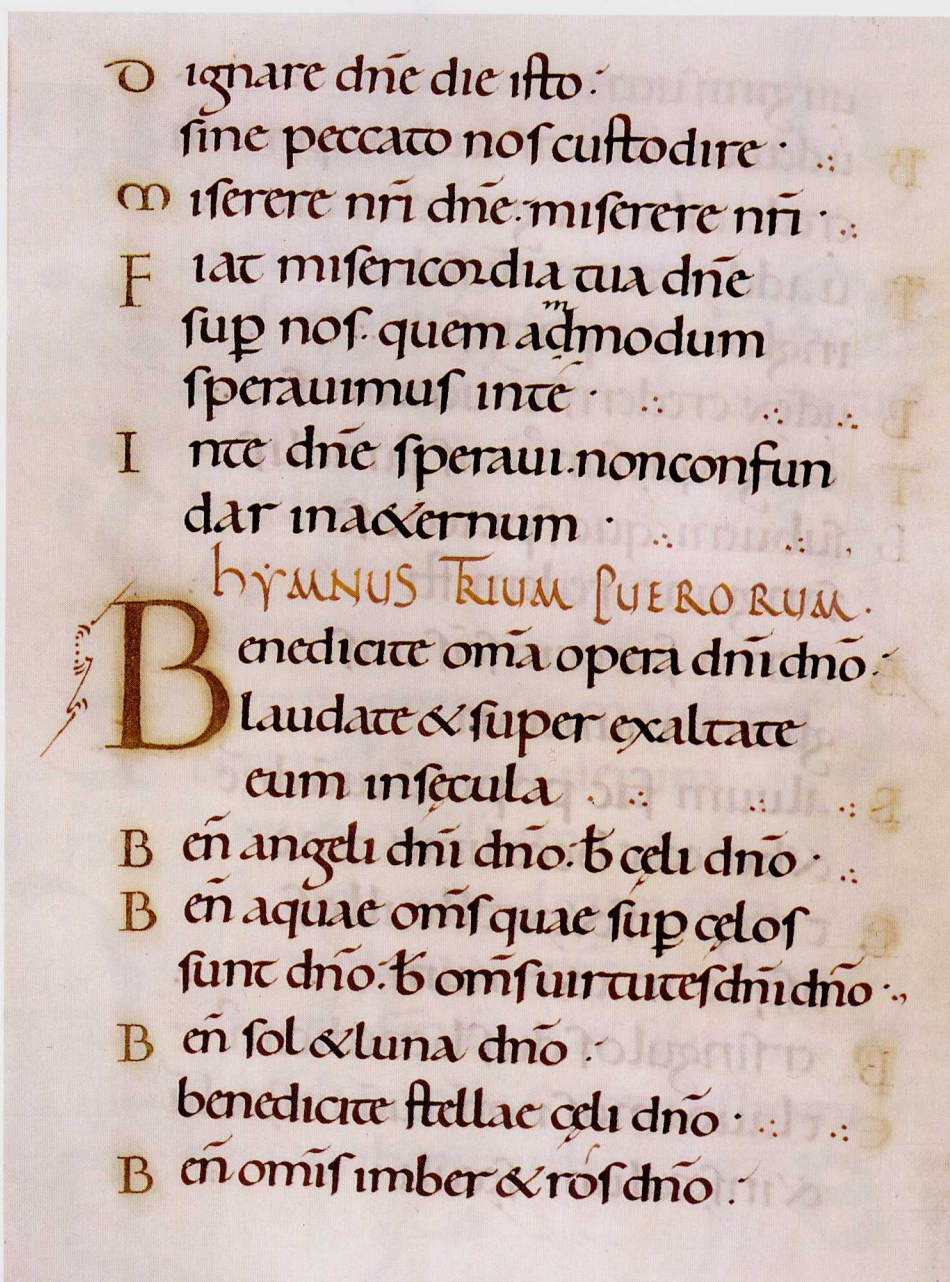 Dignare dn̄e die isto:
sine peccato nos custodire ·.:
Miserere nr̄i dn̄e:·miserere nr̄i ·.:
Fiat misericordia tua dn̄e
suꝑ nos· quem admmodum
sperauimus inte ·.: .: .:
Inte dn̄e speraui.nonconfun
dar ina&ernum · .: .: .
hYMNUS TRIUM PUERORUM·
Benedicite om̄a opera dn̄i dn̄o:
laudate & super exaltate
eum insęcula . .: .: .:
Ben̄ angeli dn̄i dn̄o:ƀ cęli dn̄o · .:
Ben̄ aquae om̄s quae suꝑ cęlos
sunt dn̄o:ƀ om̄s uirtutes dn̄i dn̄o ·.,
Ben̄ sol & luna dn̄o :·
benedicite stellae cęli dn̄o · .: .:
Ben̄ omīs imber & ros dn̄o :·